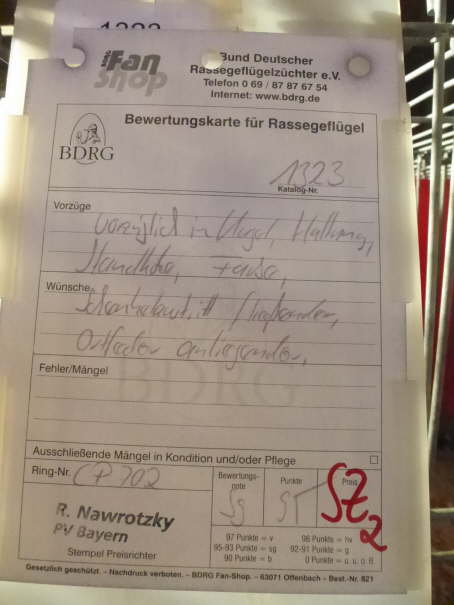 1323
Fan
Shop
Bund Deutscher
Rassegeflügelzüchter e.V.
Telefon 0 69 / 87 87 67 54
Internet: www.bdrg.de
Bewertungskarte für Rassegeflügel
BDRG
1323
Katalog-Nr.
Vorzüge
vorzüglich in Flügel, Haltung,
Standhöhe, Farbe,
Wünsche
Schenkelaustritt fließender,
Ortfeder anliegender,
Fehler/Mängel
BDRG
Ausschließende Mängel in Kondition und/oder Pflege
Ring-Nr. CP 702
Bewertungs-
note
Sg
Punkte
95
Preis
SZ 2
R. Nawrotzky
PV Bayern
Stempel Preisrichter
97 Punkte = v
96 Punkte = hv
95-93 Punkte = sg
92-91 Punkte = g
90 Punkte = b
0 Punkte = o. u. o. B
Gesetzlich geschützt. – Nachdruck verboten. – BDRG Fan-Shop. – 63071 Offenbach – Best.-Nr. 821